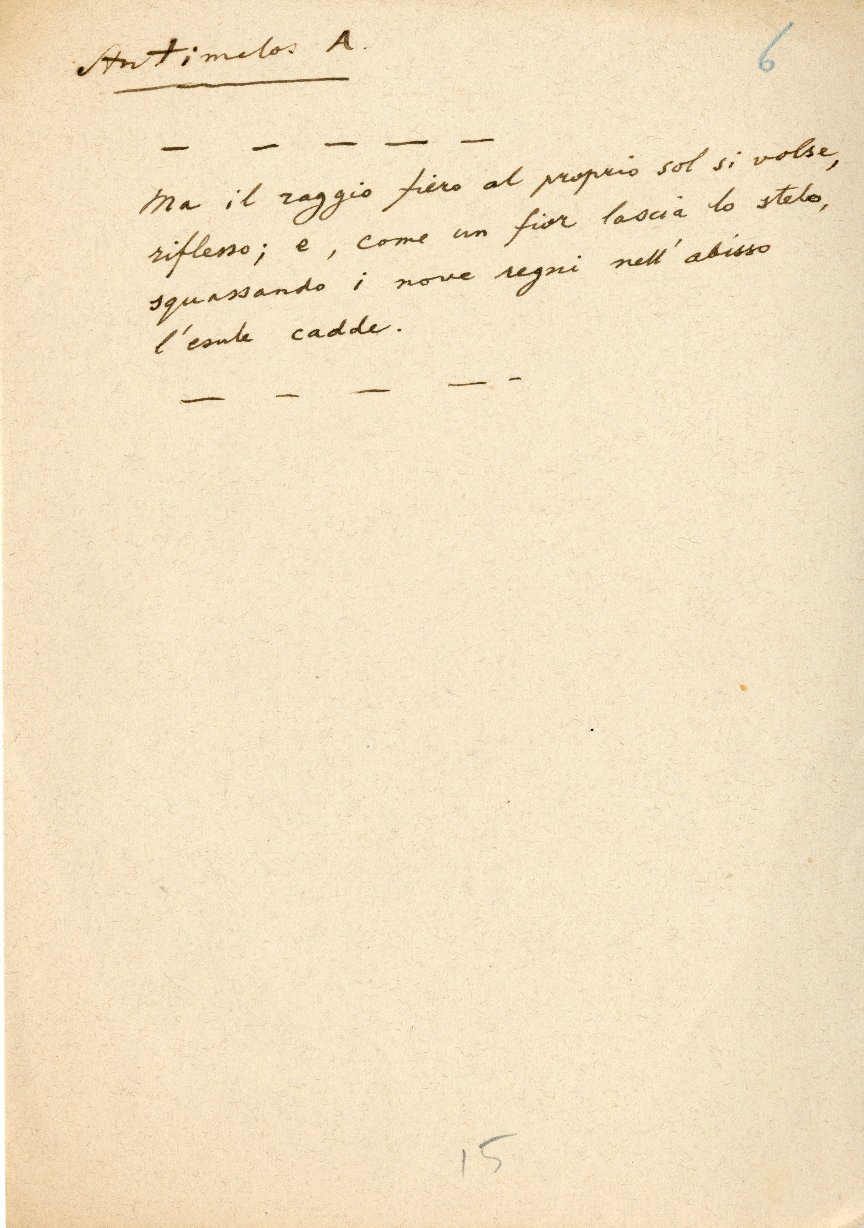 Antimelos A.
6
— — — — —
Ma il raggio fiero al proprio sol si volse,
riflesso; e, come un fior lascia lo stelo,
squassando i nove regni nell'abisso
l'esule cadde.
— — — — -
15